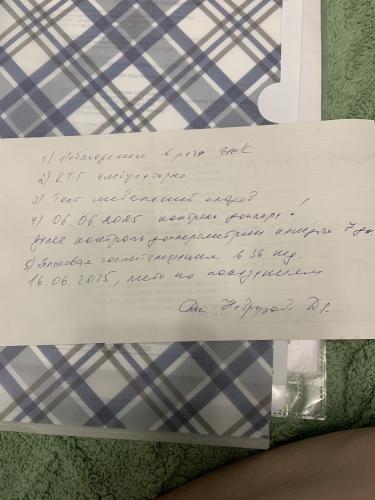 1) Наблюдение в речи ЖК
2) КТГ амбулаторно
3) Тест шевелений плода
4) 06.06.2025 контроль доплера!
далее контроль доплерометрии каждые 7 дн
5) Плановая госпитализация в 36 нед.
16.06.2025, либо по показаниям